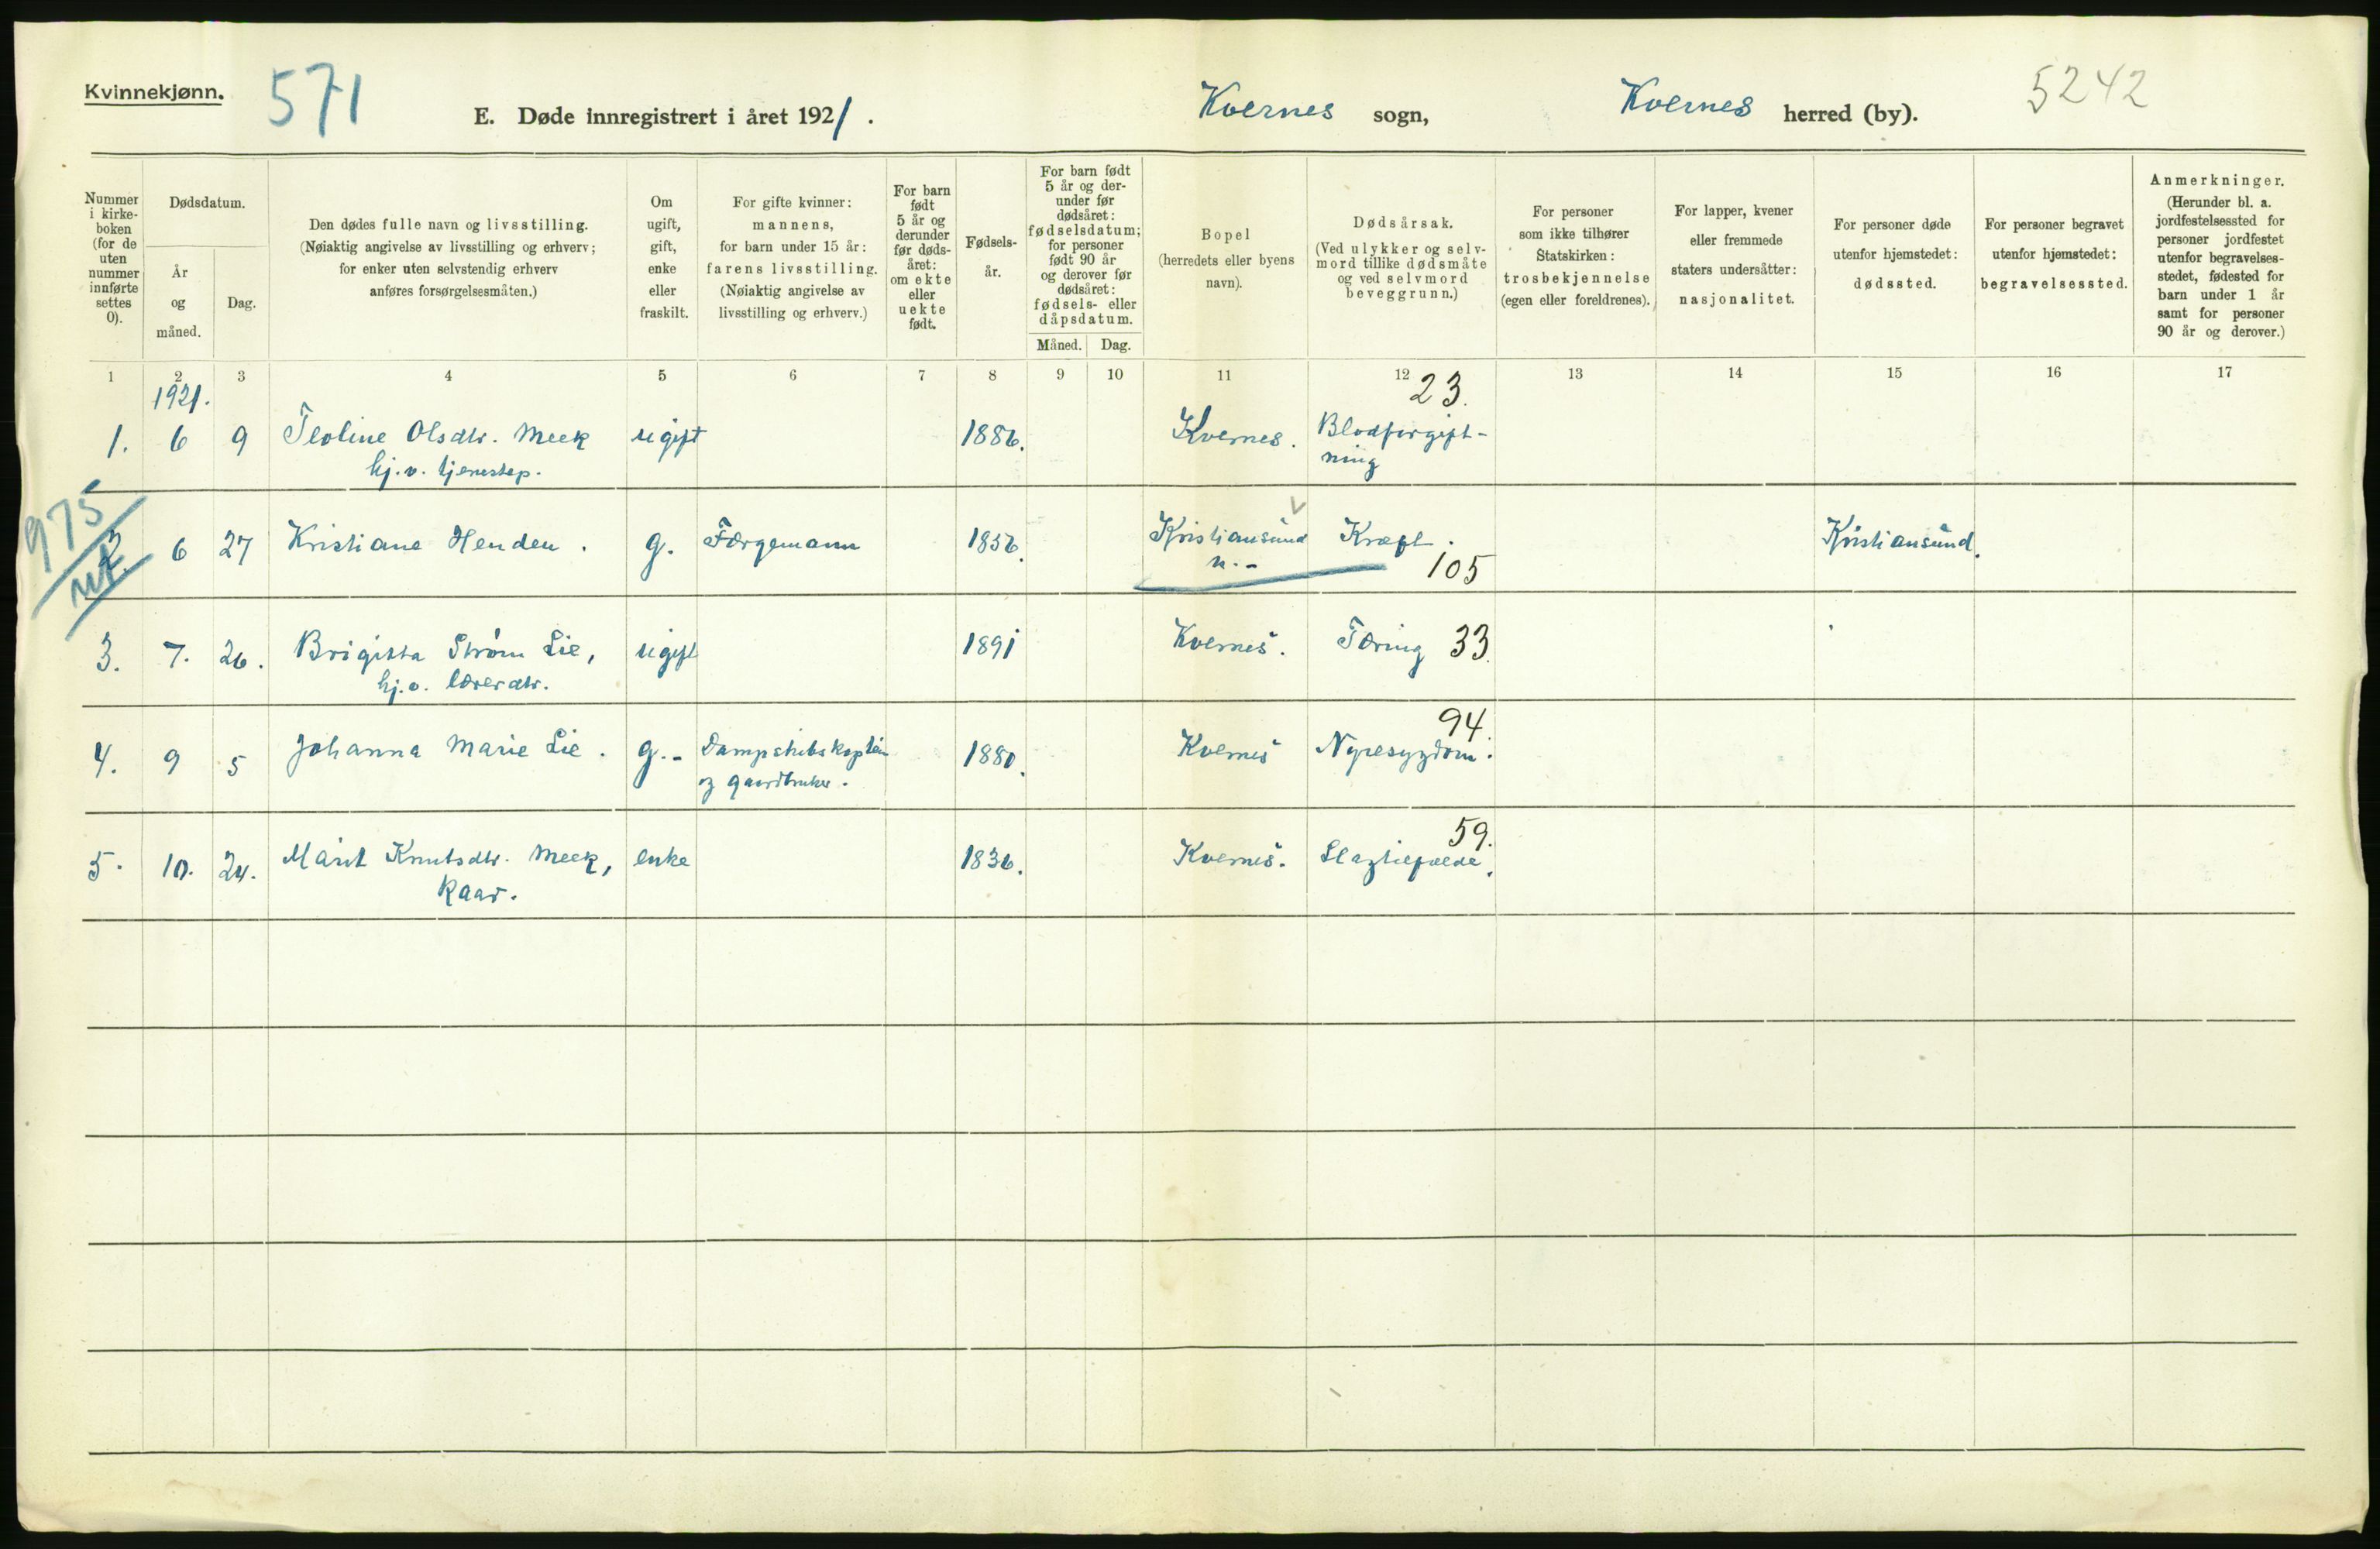 Kvinnekjønn.
571
E. Døde innregistrert i året 1921.
Kvernes sogn,
Kvernes herred (by).
5242
Nummer
i kirke-
boken
(for de
uten
nummer
innførte
settes
0).
Dødsdatum.
År
og
måned.
Dag.
Den dødes fulle navn og livsstilling.
(Nøiaktig angivelse av livsstilling og erhverv;
for enker uten selvstendig erhverv
anføres forsørgelsesmåten.)
Om
ugift,
gift,
enke
eller
fraskilt.
For gifte kvinner:
mannens,
for barn under 15 år:
farens livsstilling.
(Nøiaktig angivelse av
livsstilling og erhverv.)
For barn
født
5 år og
derunder
før døds-
året:
om ekte
eller
uekte
født.
Fødsels-
år.
For barn født
5 år og der-
under før
dødsåret:
fødselsdatum;
for personer
født 90 år
og derover før
dødsåret:
fødsels- eller
dåpsdatum.
Måned. Dag.
Bopel
(herredets eller byens
navn).
Dødsårsak.
(Ved ulykker og selv-
mord tillike dødsmåte
og ved selvmord
beveggrunn.)
For personer
som ikke tilhører
Statskirken:
trosbekjennelse
(egen eller foreldrenes).
For lapper, kvener
eller fremmede
staters undersåtter:
nasjonalitet.
For personer døde
utenfor hjemstedet:
dødssted.
For personer begravet
utenfor hjemstedet:
begravelsessted.
Anmerkninger.
(Herunder bl. a.
jordfestelsessted for
personer jordfestet
utenfor begravelses-
stedet, fødested for
barn under 1 år
samt for personer
90 år og derover.)
1 2 3 4 5 6 7 8 9 10 11 12 13 14 15 16 17
1921. 23.
1. 6 9 Teoline Olsdtr. Meek ugift 1886. Kvernes. Blodforgift-
hj.v. tjenestep. ning
975
2. 6 27 Kristiane Henden. g. Færgemann 1856. Kristiansund Kræft. Kristiansund.
n.- 105
3. 7. 26. Brigitta Strøm Lie, ugift 1891 Kvernes. Tæring 33.
hj.v. lærerdtr.
94.
4. 9 5 Johanna Marie Lie. g.- Dampskibskaptein 1880. Kvernes Nyresygdom.
og gaardbruker.
59.
5. 10. 24. Marit Knutsdtr. Meek, enke 1836. Kvernes. Slagtilfælde.
Kaar.